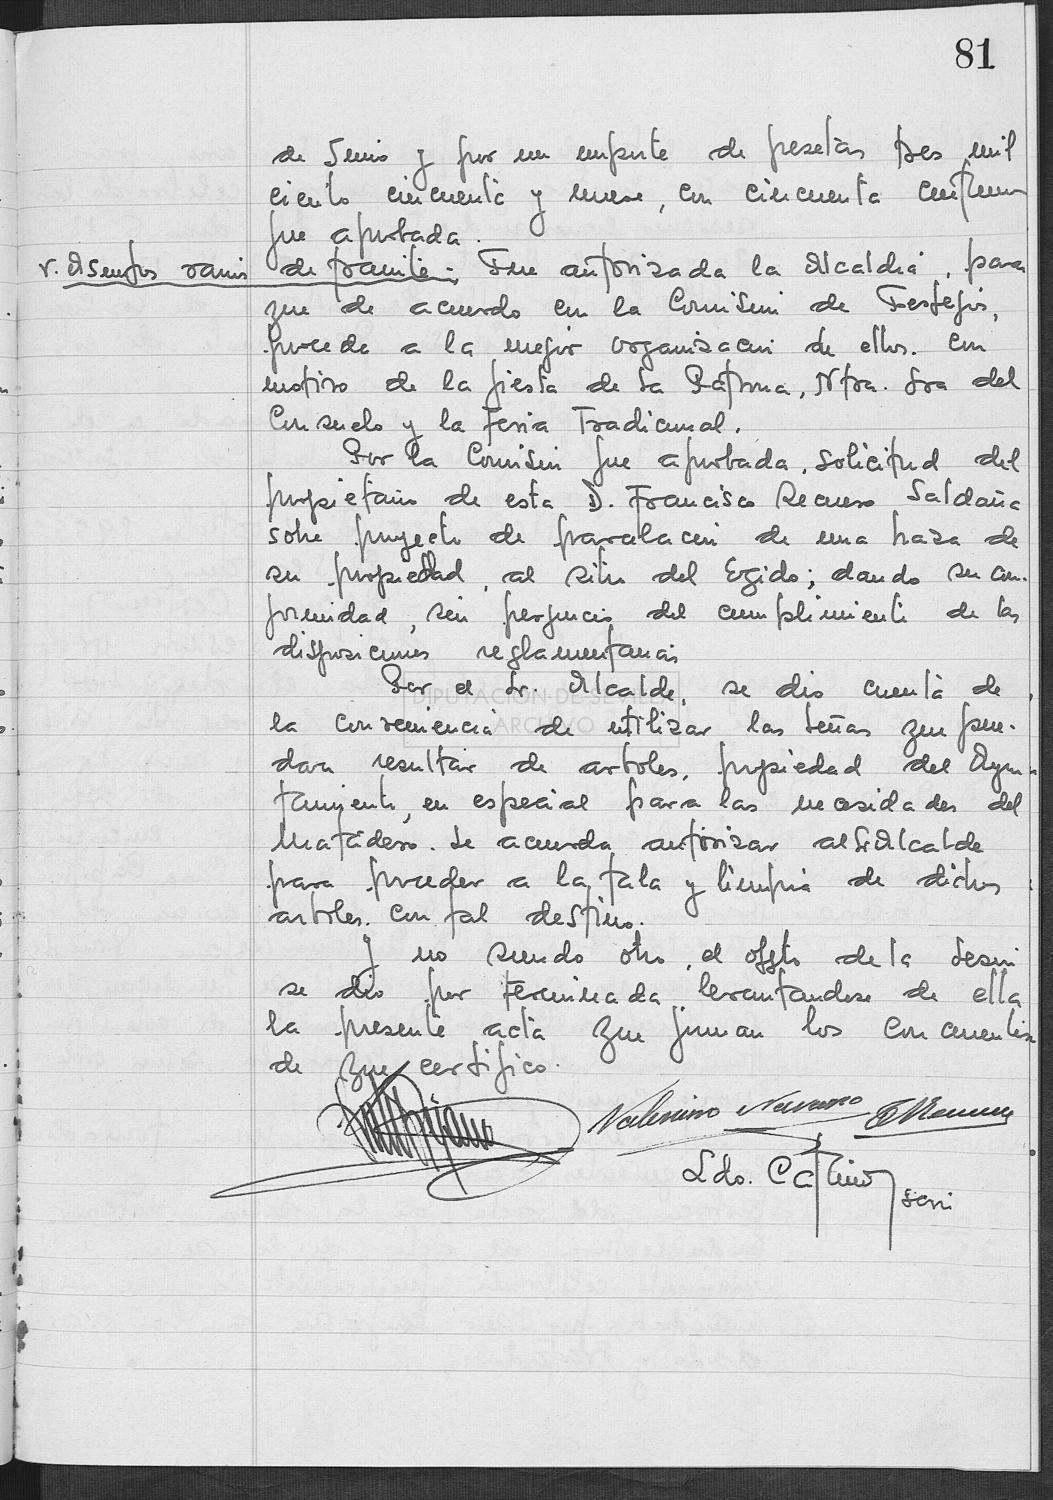 81
de Junio y por un importe de pesetas tres mil
ciento cincuenta y nueve, con cincuenta centimos
fue aprobada.
v. Asuntos varios de tramite: Fue autorizada la Alcaldia, para
que de acuerdo con la Comision de Festejos,
proceda a la mejor organizacion de ellos. Con
motivo de la fiesta de la Patrona, Ntra. Sra del
Consuelo y la Feria Tradicional.
Por la Comision fue aprobada, solicitud del
propietario de esta D. Francisco Recuero Saldaña
sobre proyecto de parcelacion de una haza de
su propiedad, al sitio del Egido; dando su con-
formidad, sin perjuicio del cumplimiento de las
disposiciones reglamentarias
Por el Sr. Alcalde, se dio cuenta de
la conveniencia de utilizar las leñas que pue-
dan resultar de arboles, propiedad del Ayun-
tamiento, en especial para las necesidades del
Matadero. Se acuerda autorizar al Sr Alcalde
para proceder a la tala y limpia de dichos
arboles. Con tal destino.
Y no siendo otro, el objeto de la sesion
se dio por terminada, levantandose de ella
la presente acta que firman los concurrentes
de que certifico.
Valeriano Navarro
Ldo. Catino
DIPUTACIÓN DE SEVILLA
ARCHIVO